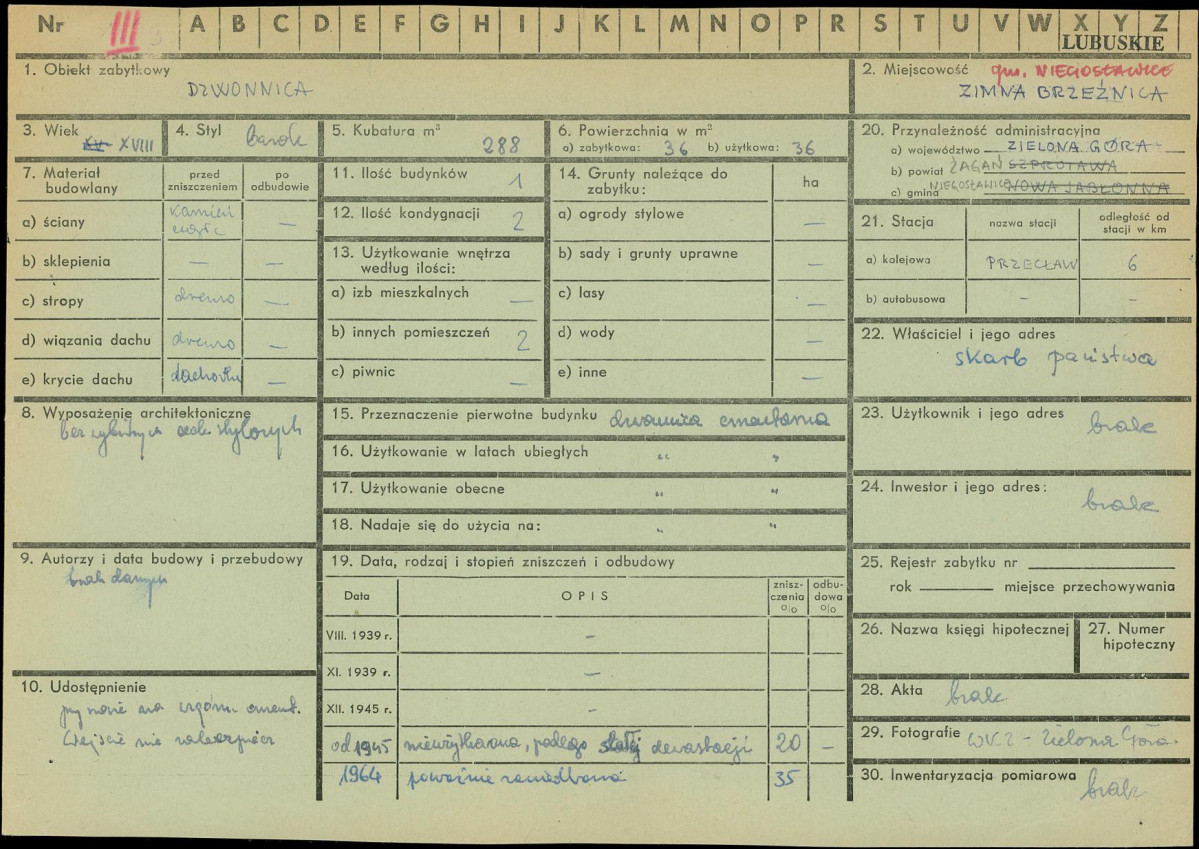 Nr III A B C D E F G H I J K L M N O P R S T U V W X Y Z
LUBUSKIE
1. Obiekt zabytkowy
DZWONNICA
2. Miejscowość gm. NIEGOSŁAWICE
ZIMNA BRZEŹNICA
3. Wiek
XV XVIII
4. Styl barok
5. Kubatura m³
288
6. Powierzchnia w m²
a) zabytkowa: 36 b) użytkowa: 36
20. Przynależność administracyjna
a) województwo ZIELONA GÓRA
b) powiat ŻAGAŃ SZPROTAWA
c) gmina NIEGOSŁAWICE NOWA JABŁONNA
7. Materiał budowlany
przed zniszczeniem
po odbudowie
a) ściany kamień cegła —
b) sklepienia — —
c) stropy drewno —
d) wiązania dachu drewno —
e) krycie dachu dachówka —
11. Ilość budynków 1
12. Ilość kondygnacji 2
13. Użytkowanie wnętrza
według ilości:
a) izb mieszkalnych —
b) innych pomieszczeń 2
c) piwnic —
14. Grunty należące do
zabytku:
ha
a) ogrody stylowe —
b) sady i grunty uprawne —
c) lasy —
d) wody —
e) inne —
21. Stacja
nazwa stacji
odległość od
stacji w km
a) kolejowa PRZECŁAW 6
b) autobusowa – –
22. Właściciel i jego adres
skarb państwa
8. Wyposażenie architektoniczne
bez
15. Przeznaczenie pierwotne budynku dzwonnica cmentarna
16. Użytkowanie w latach ubiegłych " "
17. Użytkowanie obecne " "
18. Nadaje się do użycia na: " "
23. Użytkownik i jego adres
brak
24. Inwestor i jego adres:
brak
9. Autorzy i data budowy i przebudowy
brak danych
19. Data, rodzaj i stopień zniszczeń i odbudowy
Data OPIS
znisz-
czenia
%
odbu-
dowa
%
VIII. 1939 r. –
XI. 1939 r. —
XII. 1945 r. –
od 1945 nieużytkowana, podlega stałej dewastacji 20 –
1964 poważnie zaniedbana 35
25. Rejestr zabytku nr
rok miejsce przechowywania
26. Nazwa księgi hipotecznej
27. Numer
hipoteczny
10. Udostępnienie
cment.
Wejście nie
28. Akta brak
29. Fotografie WKZ – Zielona Góra
30. Inwentaryzacja pomiarowa
brak